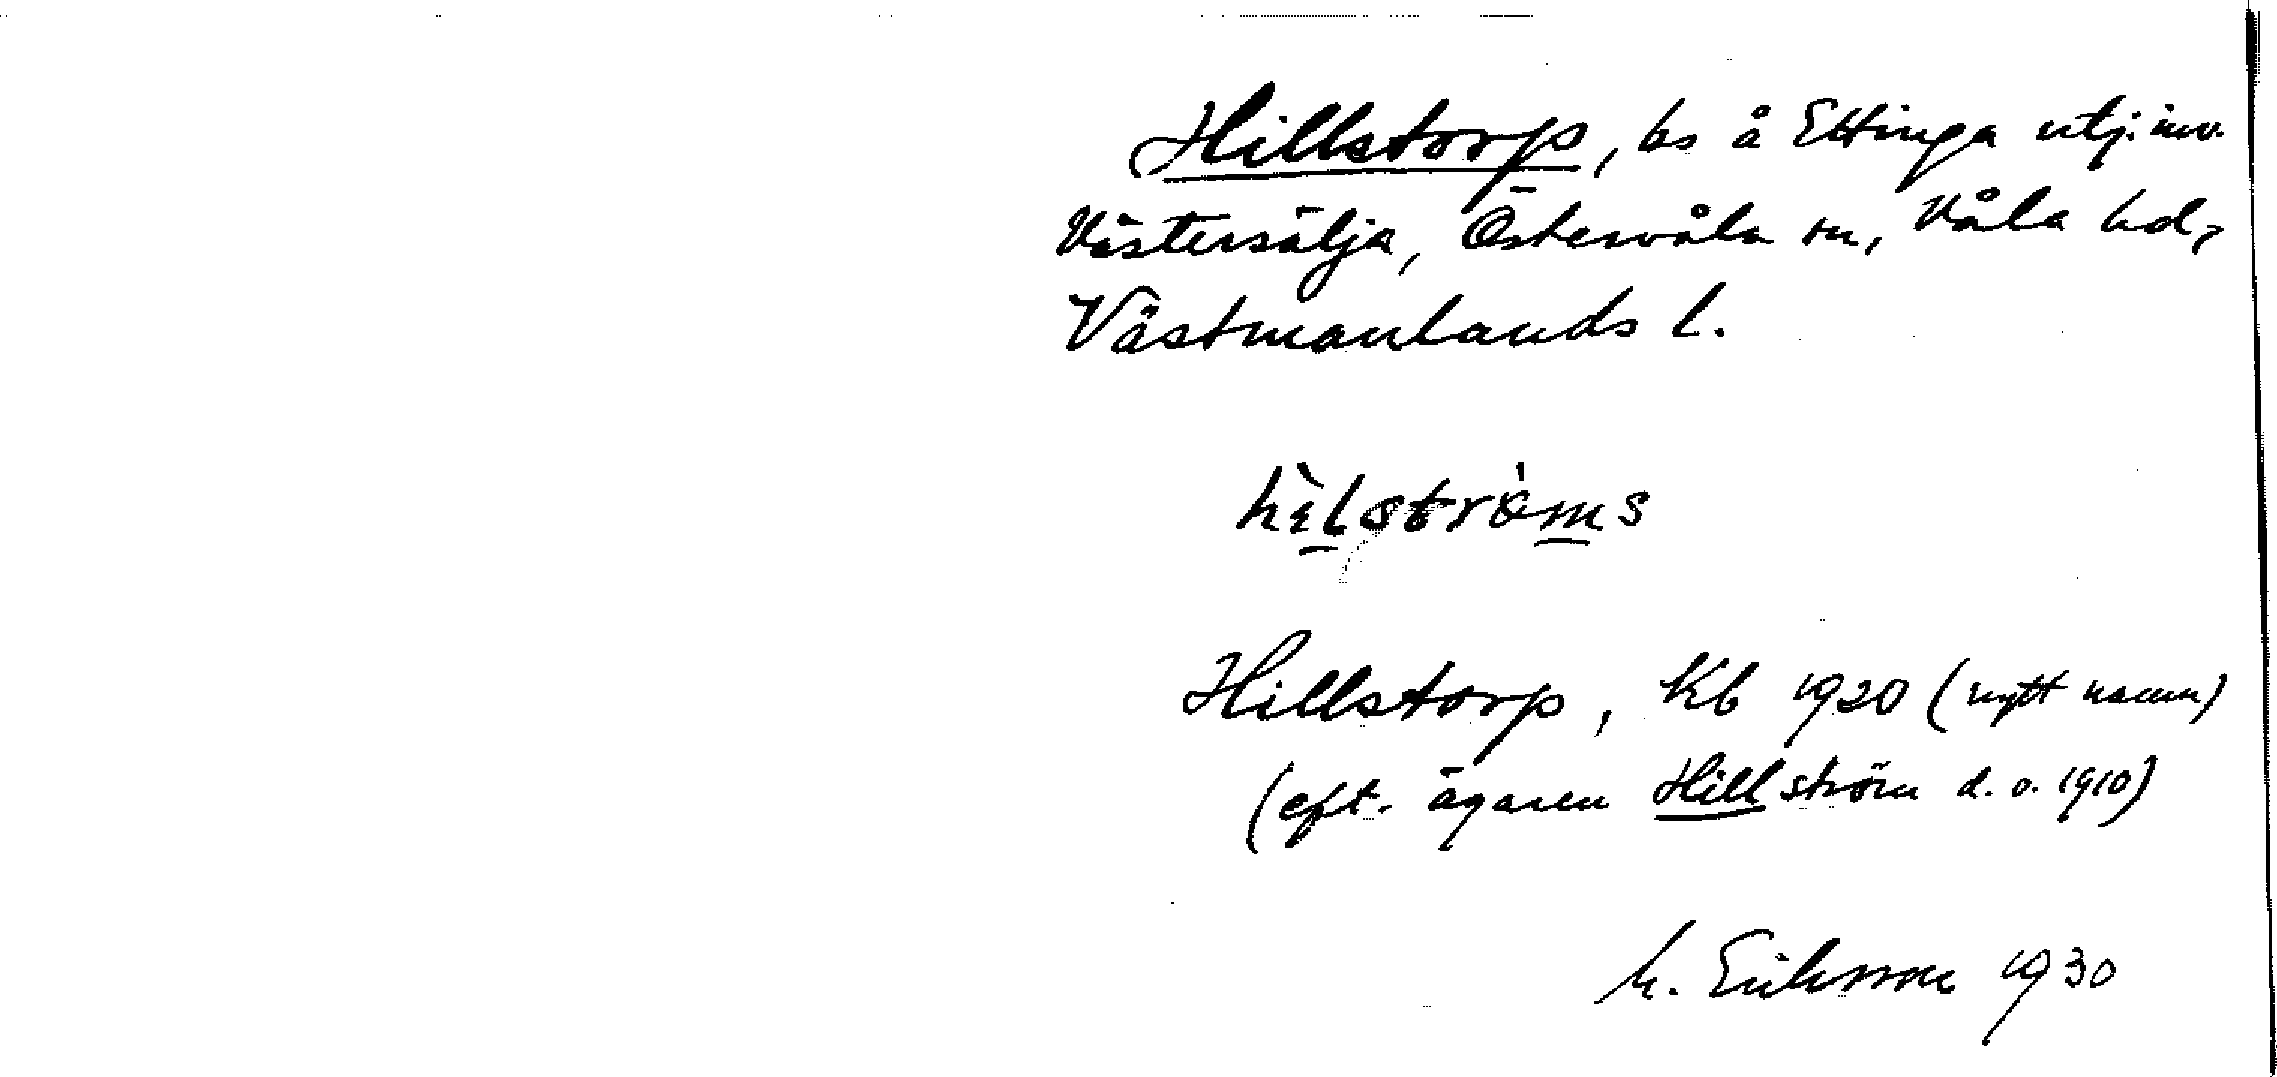 Hillstorp, ls å Ettinga utj. inv.
Västersälja, Östervåla sn, Våla hd,
Västmanlands l.
hìlströ̀ms
Hillstorp, Kb 1920 (nytt namn)
(eft. ägaren Hillström d. o. 1910)
M. Eriksson 1930